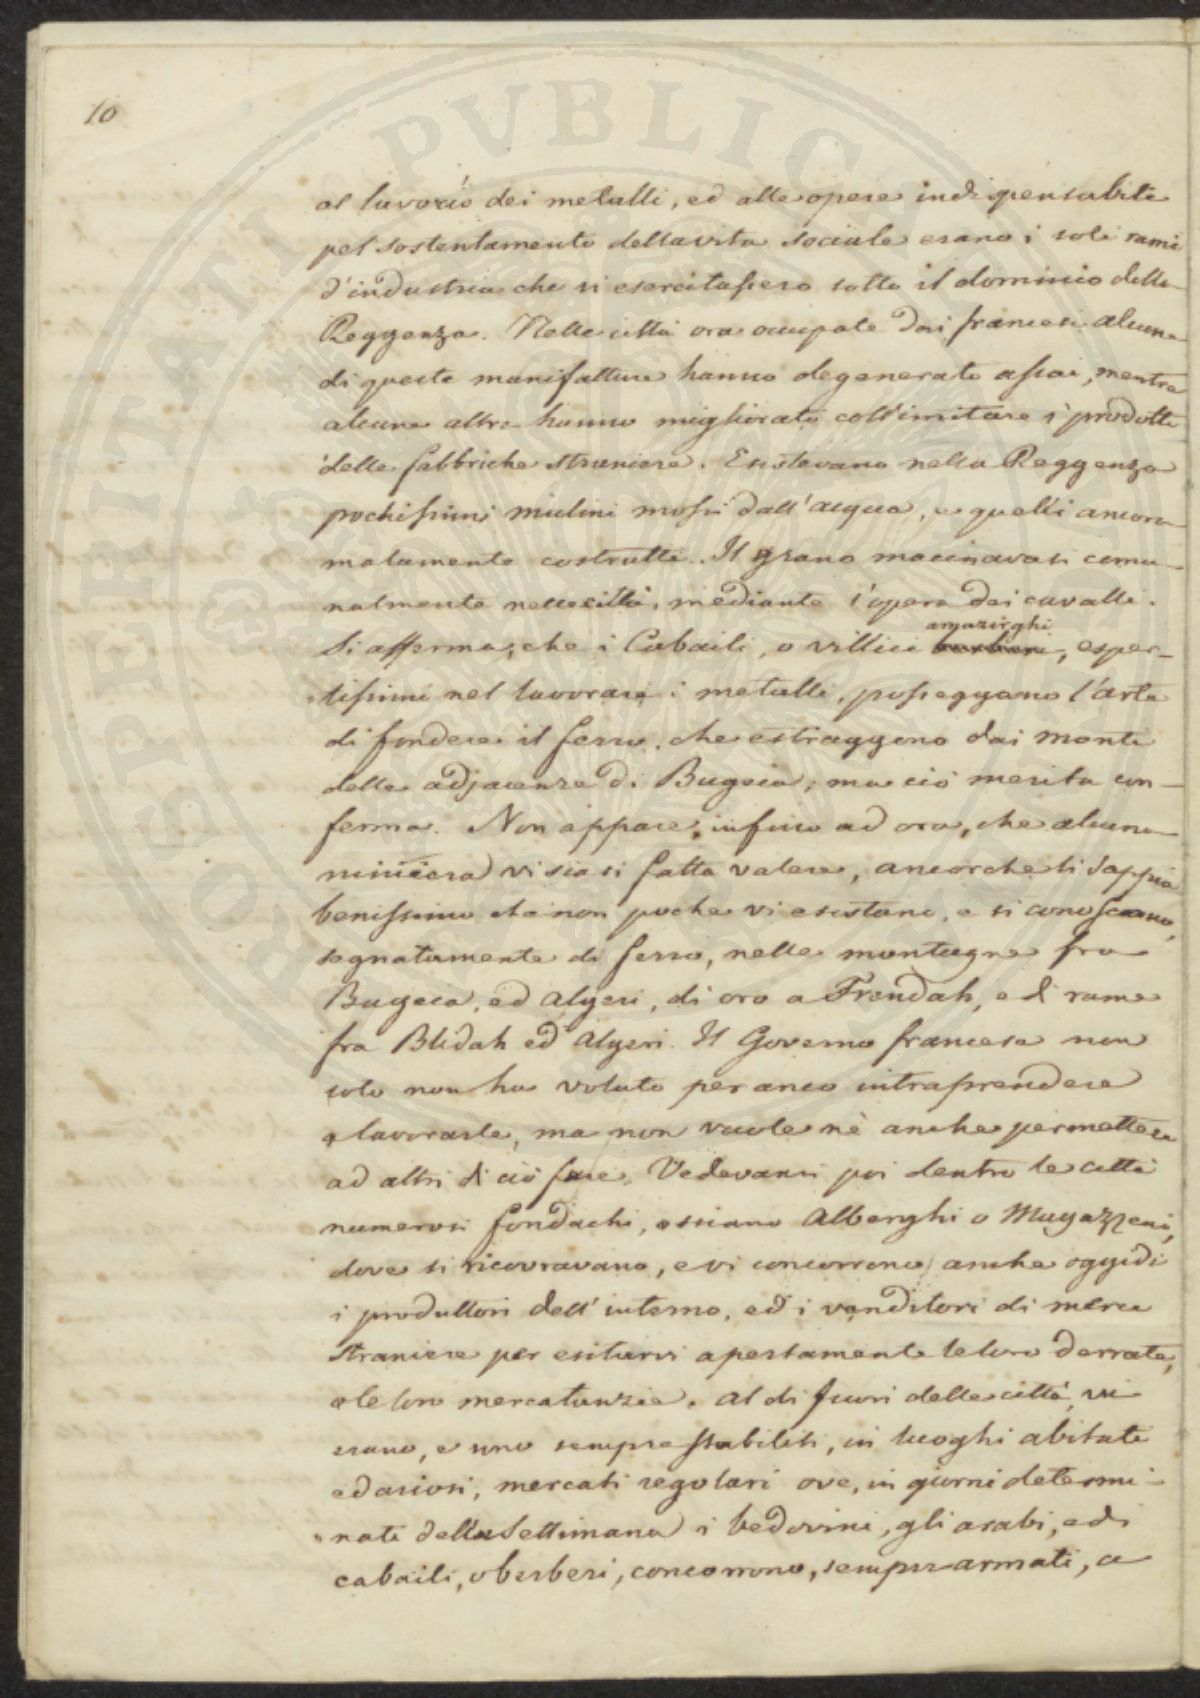 10
al lavorío dei metalli, ed alle opere indispensabile
pel sostentamento della vita sociale erano i soli rami
d'industria che si esercitassero sotto il dominio della
Reggenza. Nelle città ora occupate dai francesi alcune
di queste manifatture hanno degenerato assai, mentre
alcune altre hanno migliorato coll'imitare i prodotti
delle fabbriche straniere. Esistevano nella Reggenza
pochissimi mulini mossi dall'acqua, e quelli ancora
malamente costrutti. Il grano macinavasi comu-
nalmente nelle città, mediante l'opera dei cavalli.
amazirghi
Si afferma, che i Cabaili, o villici , esper-
tissimi nel lavorare i metalli, posseggano l'arte
di fondere il ferro, che estraggono dai monti
delle adjacenze di Bugeia; ma ciò merita con-
ferma. Non appare, infino ad ora, che alcuna
miniera vi siasi fatta valere, ancorche si sappia
benissimo che non poche vi esistano, e si conoscano,
segnatamente di ferro, nelle montagne fra
Bugeia, ed Algeri, di oro a Frendah, e di rame
fra Blidah ed Algeri. Il Governo francese non
solo non ha voluto per anco intraprendere
a lavorarle, ma non vuole nè anche permettere
ad altri di ciò fare. Vedevansi poi dentro le città
numerosi fondachi, ossiano Alberghi o Magazzeni,
dove si ricovravano, e vi concorrono anche oggidì
i produttori dell'interno, ed i venditori di merce
straniere per esitarvi apertamente le loro derrate,
o le loro mercatanzie. Al di fuori delle città, vi
erano, e sono sempre stabiliti, in luoghi abitati
ed ariosi, mercati regolari ove, in giorni determi-
nati della settimana i bedovini, gli arabi, ed i
cabaili, o berberi, concorrono, sempre armati, a
PROSPERITATI PVBLICAE